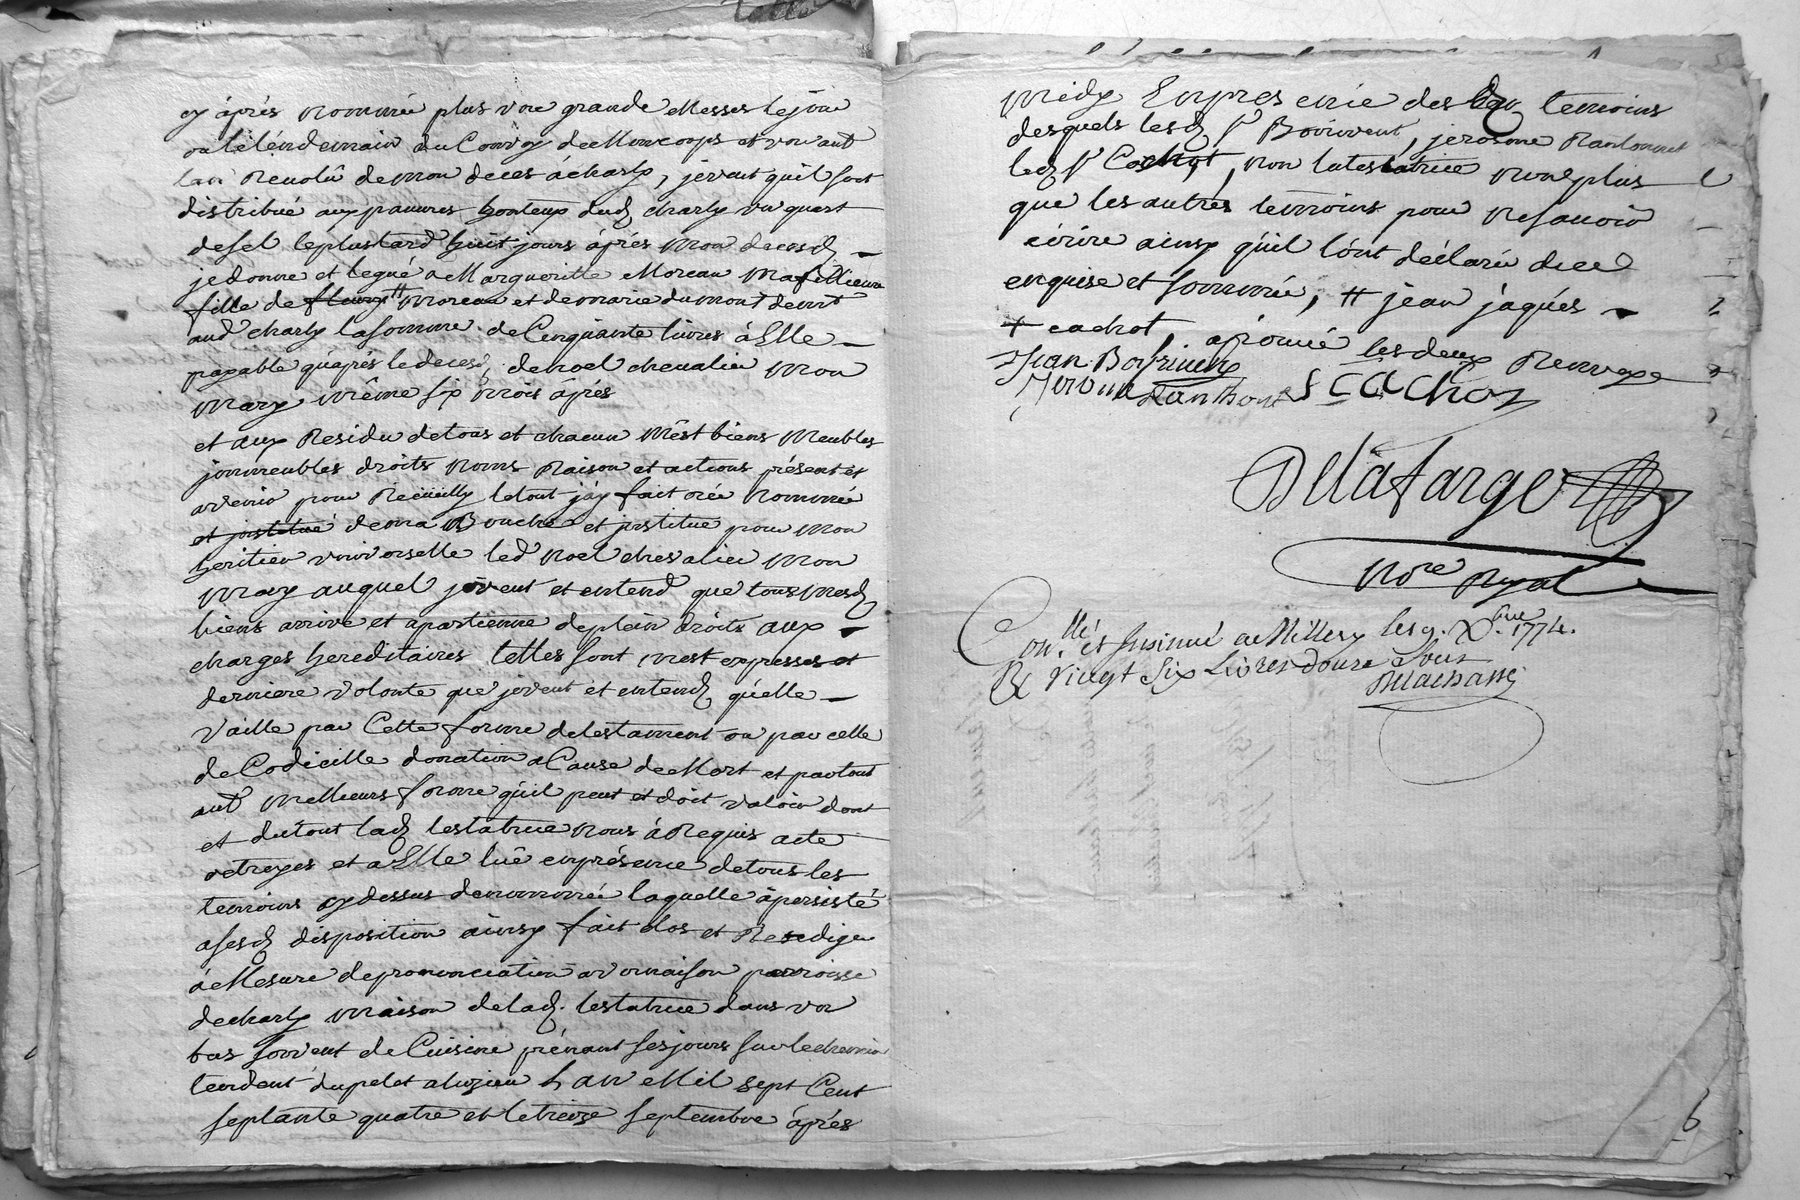 cy áprés nommé plus une grande Messes le jour
ou le léndemain du Convoy de Mon corps et un aut
lan Revolû de mon deces á charly, je veut quil soit
distribué aux pauvres honteux dud. charly un quart
de sel le plus tard huit jours áprés mon decesd.
je donne et legué a Margueritte Moreau Ma fillieulle
fille de fleury # Moreau et de marie dumont demt
aud charly la somme de Cinquante livres á Elle
payable qu'áprés le decesd. de noel chevalier mon
mary même six mois áprés
et aux Residu de tous et chacun Mest biens meubles
jmmeubles droits noms Raison et actions présent et
avenir pour Recüeilly le tout j'ay fait crée nommé
et jnstitué de ma Bouche et jnstitue pour mon
heritier universelle led noel chevalier mon
mary auquel je veut et entend que tous mesd.
biens arrive et apartienne de plein droits aux
charges hereditaires telles sont mest expresses et
derniere volonte que je veut et entend quélle
vaille par Cette forme de testament ou par celle
de Codicille donation a Cause de Mort et partout
autt meilleurs forme quil peut et doit valoir dont
et du tout lad. testatrice nous á Requis acte
octroyes et a Elle luë en présence de tous les
temoins cy dessus denommé laquelle á persisté
a sesd. disposition ainsy fait clos et Redige
á Mesure de prononciation a vernaison parroisse
de charly maison de lad. testatrice dans un
bas servent de Cuisine prénant ses jours sur le chemin
tendent du pelet a luzieu L'an Mil sept Cent
septante quatre et le treize septembre áprés
midy En presence desdts temoins
desquels lesd. sr Boirivent, jerosme Rantonnet
led. sr Cachot, non la testatrice non plus
que les autres temoins pour ne savoir
écrire ainsy quil lônt déclaré de ce
enquise et sommé, # jean jaqués
+ cachot, aprouvé les deux Renvoye
Jean Boiriven
Jerome Ranthonet S CAchot
Delafarge
Nore Royal
Conllé et Insinué a Millery le 9. Xbre 1774.
R Vingt Six Livres douze Sous